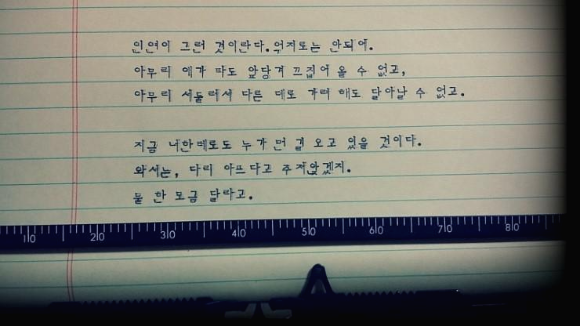 인연이 그런 것이란다. 억지로는 안되어.
아무리 애가 타도 앞당겨 끄집어 올 수 없고,
아무리 서둘러서 다른 데로 가려 해도 달아날 수 없고.
지금 너한테로도 누가 먼 길 오고 있을 것이다.
와서는, 다리 아프다고 주저앉겠지.
물 한 모금 달라고.
10 20 30 40 50 60 70 80